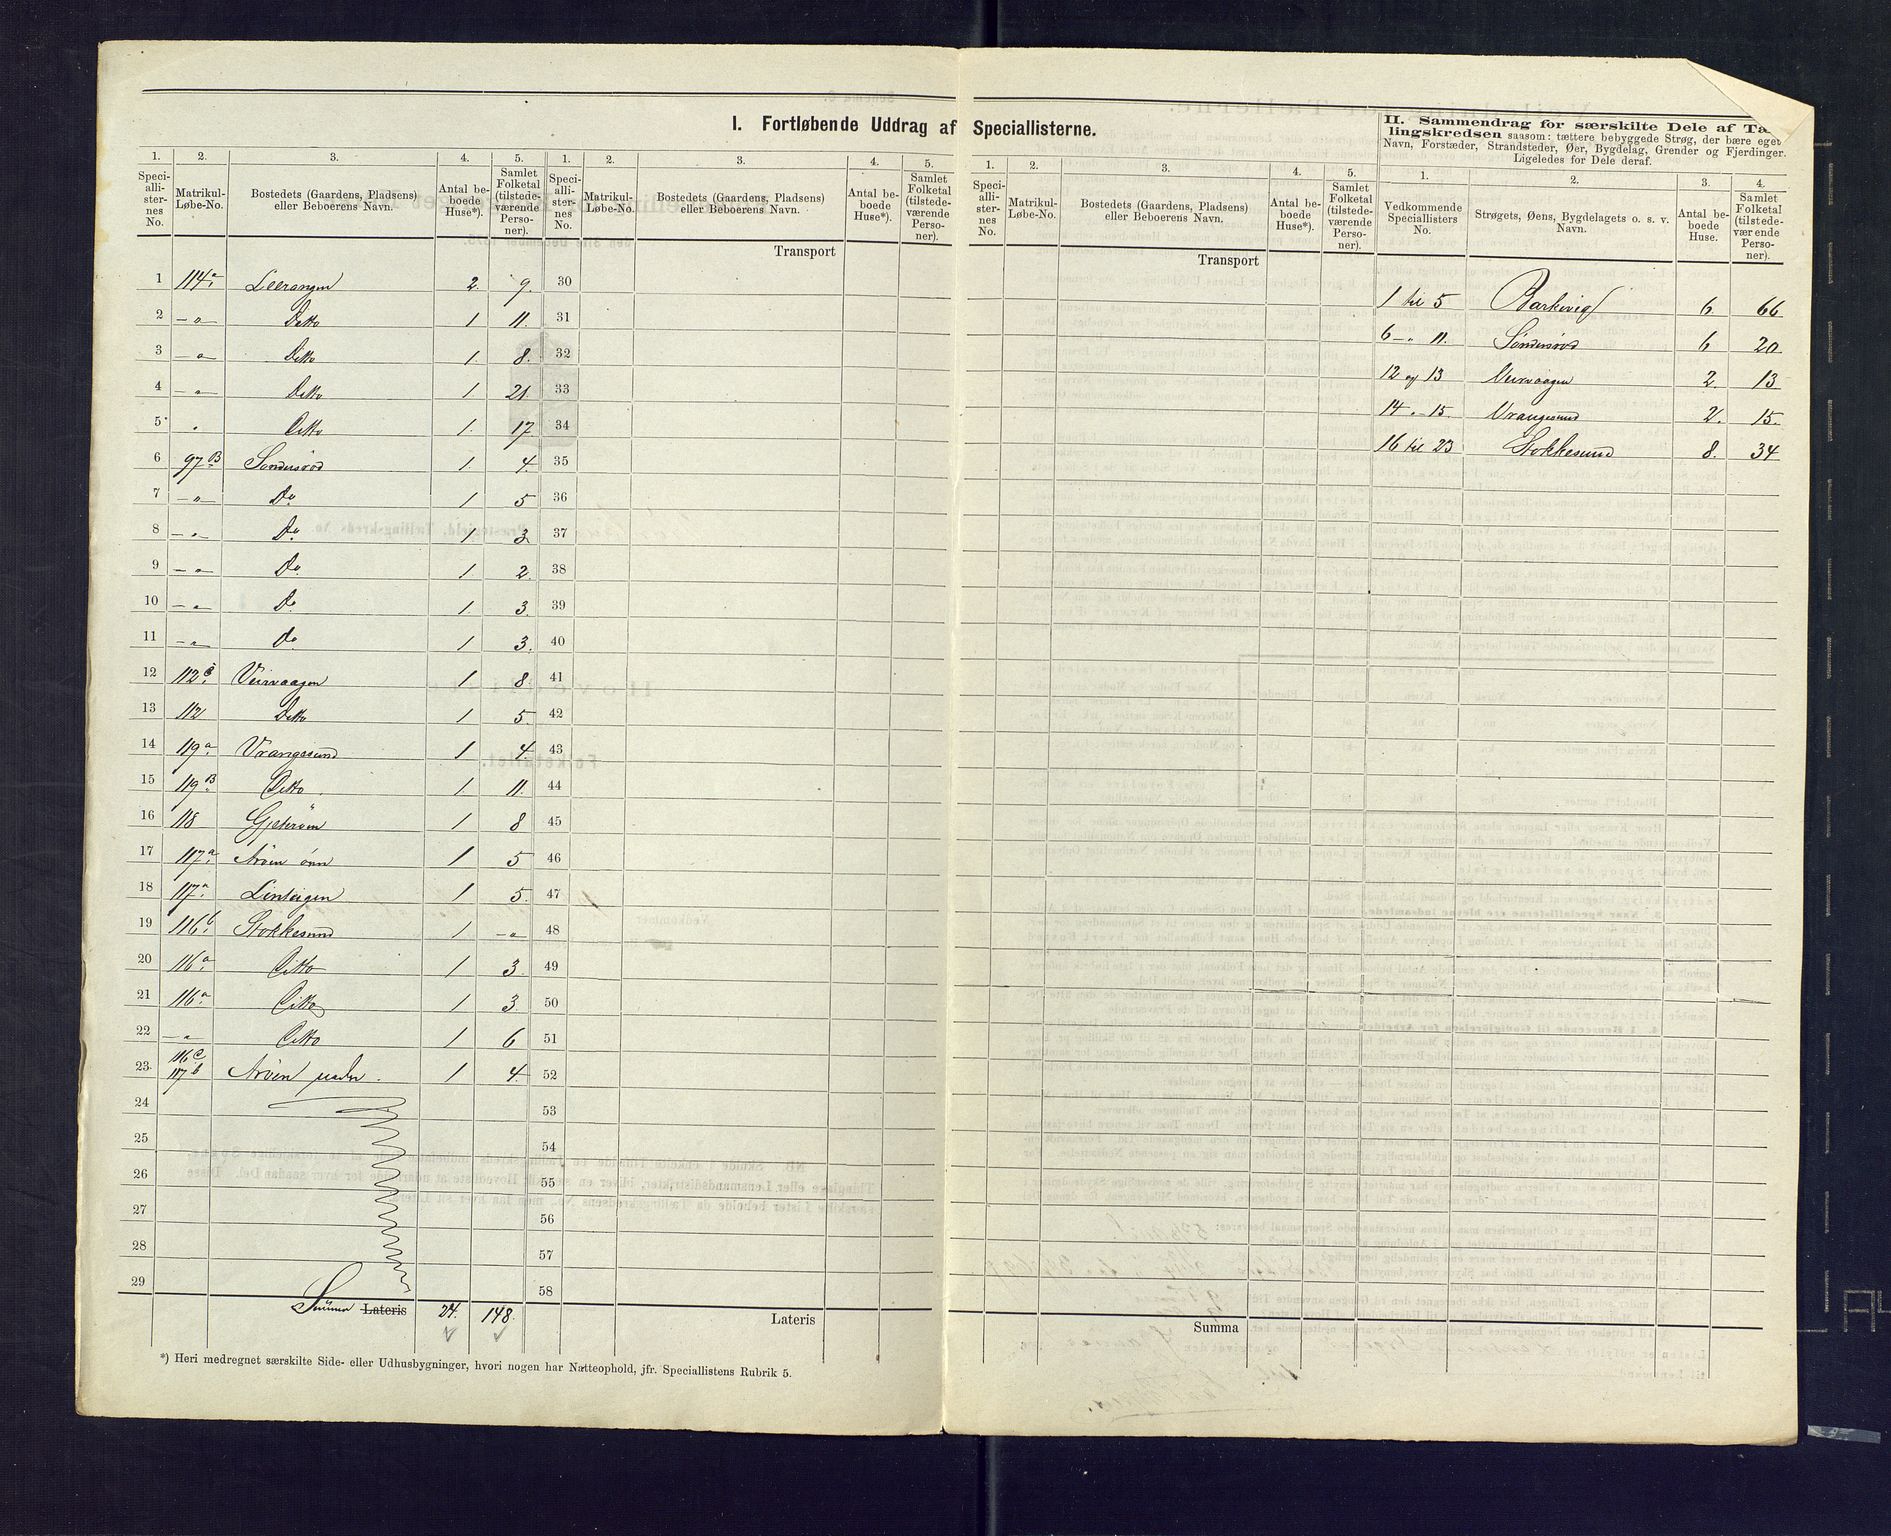 I. Fortløbende Uddrag af Speciallisterne.
1. 2. 3. 4. 5.
Speciallisternes No. Matrikul-Løbe-No. Bostedets (Gaardens, Pladsens) eller Beboerens Navn. Antal beboede Huse*). Samlet Folketal (tilstedeværende Personer).
1 114a. Leerangen 2. 9.
2 —"— Ditto 1 11.
3 —"— Ditto 1. 8.
4 —"— Ditto 1 21.
5 " Ditto 1. 17.
6 97B Søndersrød 1 4.
7 —"— Do 1 5
8 —"— Do 1. 3.
9 —"— Do 1 2.
10 —"— Do 1. 3.
11 —"— Do 1 3.
12 112 Veirvaagen 1 8.
13 112 Ditto 1 5.
14 119a. Vrangesund 1 4.
15 119B. Ditto 1. 11.
16 118 1 8
17 117a. Arøen 1 5
18 117a. 1 5.
19 116b. Stokkesund 1 —"—
20 116a. Ditto 1 3.
21 116a. Ditto 1 3.
22 —"— Ditto 1 6
23 116c 117b Arøen 1 4.
24
25
26
27
28
29
Summa Lateris 24. 148.
*) Heri medregnet særskilte Side- eller Udhusbygninger, hvori nogen har Natteophold, jfr. Speciallistens Rubrik 5.
1. 2. 3. 4. 5.
Speciallisternes No. Matrikul-Løbe-No. Bostedets (Gaardens, Pladsens) eller Beboerens Navn. Antal beboede Huse*). Samlet Folketal (tilstedeværende Personer).
Transport
30
31
32
33
34
35
36
37
38
39
40
41
42
43
44
45
46
47
48
49
50
51
52
53
54
55
56
57
58
Lateris
1. 2. 3. 4. 5.
Speciallisternes No. Matrikul-Løbe-No. Bostedets (Gaardens, Pladsens) eller Beboerens Navn. Antal beboede Huse*). Samlet Folketal (tilstedeværende Personer).
Transport
Summa
II. Sammendrag for særskilte Dele af Tæ-
lingskredsen saasom: tættere bebyggede Strøg, der bære eget
Navn, Forstæder, Strandsteder, Øer, Bygdelag, Grender og Fjerdinger.
Ligeledes for Dele deraf.
1. 2. 3. 4.
Vedkommende Speciallisters No. Strøgets, Øens, Bygdelagets o. s. v. Navn. Antal beboede Huse. Samlet Folketal (tilstedeværende Personer).
1 til 5 Barkevig 6. 66
6 —"— 11. Søndersrød 6 20
12 og 13 Veirvaagen 2. 13
14 "— 15. Vrangesund 2. 15.
16 til 23 Stokkesund 8. 34